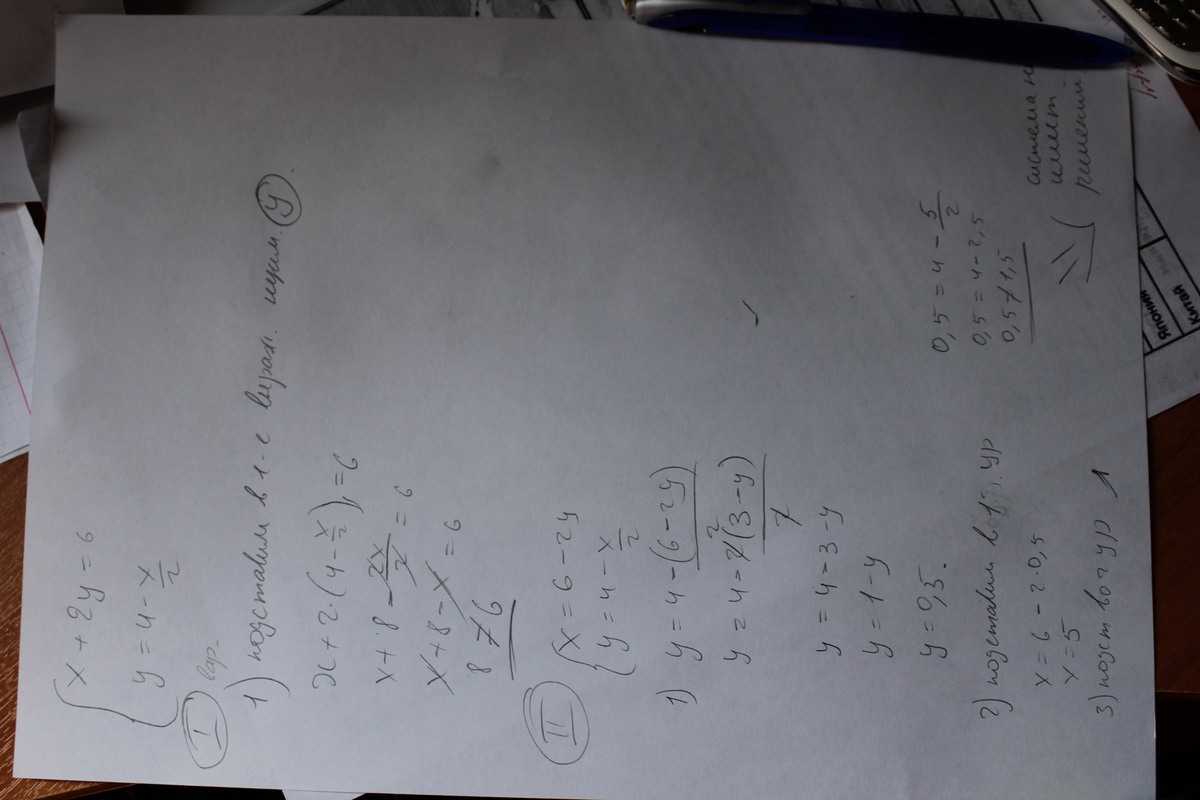 x + 2y = 6
y = 4 - x/2
I вар.
1) подставим в 1-е выраж. ищем. y.
x + 2·(4 - x/2) = 6
x + 8 - 2x/2 = 6
x + 8 - x = 6
8 ≠ 6
II
x = 6 - 2y
y = 4 - x/2
1) y = 4 - (6 - 2y)/2
y = 4 - 2(3 - y)/2
y = 4 - 3 - y
y = 1 - y
y = 0,5.
2) подставим в ур
x = 6 - 2·0,5
x = 5
3) подст во 2 ур
0,5 = 4 - 5/2
0,5 = 4 - 2,5
0,5 ≠ 1,5
система не
имеет
решений.
Япония
Китай